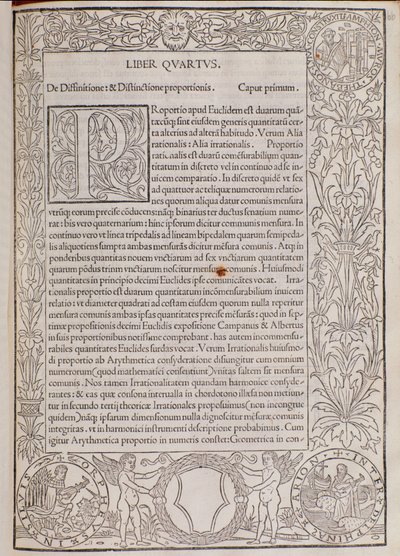 LIBER QVARTVS.
De Diffinitione: & Distinctione proportionis. Caput primum.
PRoportio apud Euclidem est duarum quā
tæcūq; sint eiusdem generis quantitatū cer
ta alterius ad alterā habitudo. Verum Alia
rationalis: Alia irrationalis. Proportio
rationalis est duarū cōmēsurabilium quan
titatum in discreto vel in continuo ad se in
uicem comparatio. In discreto quidē vt sex
ad quattuor ac teliquæ numerorum relatio-
nes quorum aliqua datur comunis mensura
vtrūq; eorum precise cōducens: nāq; binarius ter ductus senatium nume
rat: bis vero quaternarium: hinc ipsorum dicitur communis mensura. In
continuo vero vt linea tripedalis ad lineam bipedalem quarum semipeda
lis aliquotiens sumpta ambas mensurās dicitur mēsura comunis. Atq; in
ponderibus quantitas nouem vnctiarum ad sex vnctiarum quantitatem
quarum pōdus trium vnctiarum noscitur mensura comunis. Huiusmodi
quantitates in principio decimi Euclides ipse comunicātes vocat. Irra-
tionalis proportio est duarum quantitatum incōmensurabilium inuicem
relatio: vt diameter quadrati ad costam eiusdem quorum nulla reperitur
mensura comunis ambas ipsas quantitates precise mēsurās: quod in sep-
timæ propositionis decimi Euclidis expositione Campanus & Albertus
in suis proportionibus notissime comprobant. has autem incommensu-
rabiles quantitates Euclides surdas vocat. Verum Irrationalis huiusmo-
di proportio ab Arythmetica consyderatione disiungitur cum omnium
numerorum (quod mathematici consentiunt) vnitas saltem sit mensura
comunis. Nos tamen Irrationalitatem quandam harmonicæ consyde-
rantes: & eas quæ consona interualla in chordotono illæsa non metiun-
tur in secundo tertij theoricæ Irrationales proposuimus (non incongrue
quidem) nāq; ipsarum dimensionum nulla dignoscitur mēsuræ comunis
integritas. vt in harmonici instrumenti descriptione probabimus. Cum
igitur Arythmetica proportio in numeris constet: Geometrica in con-